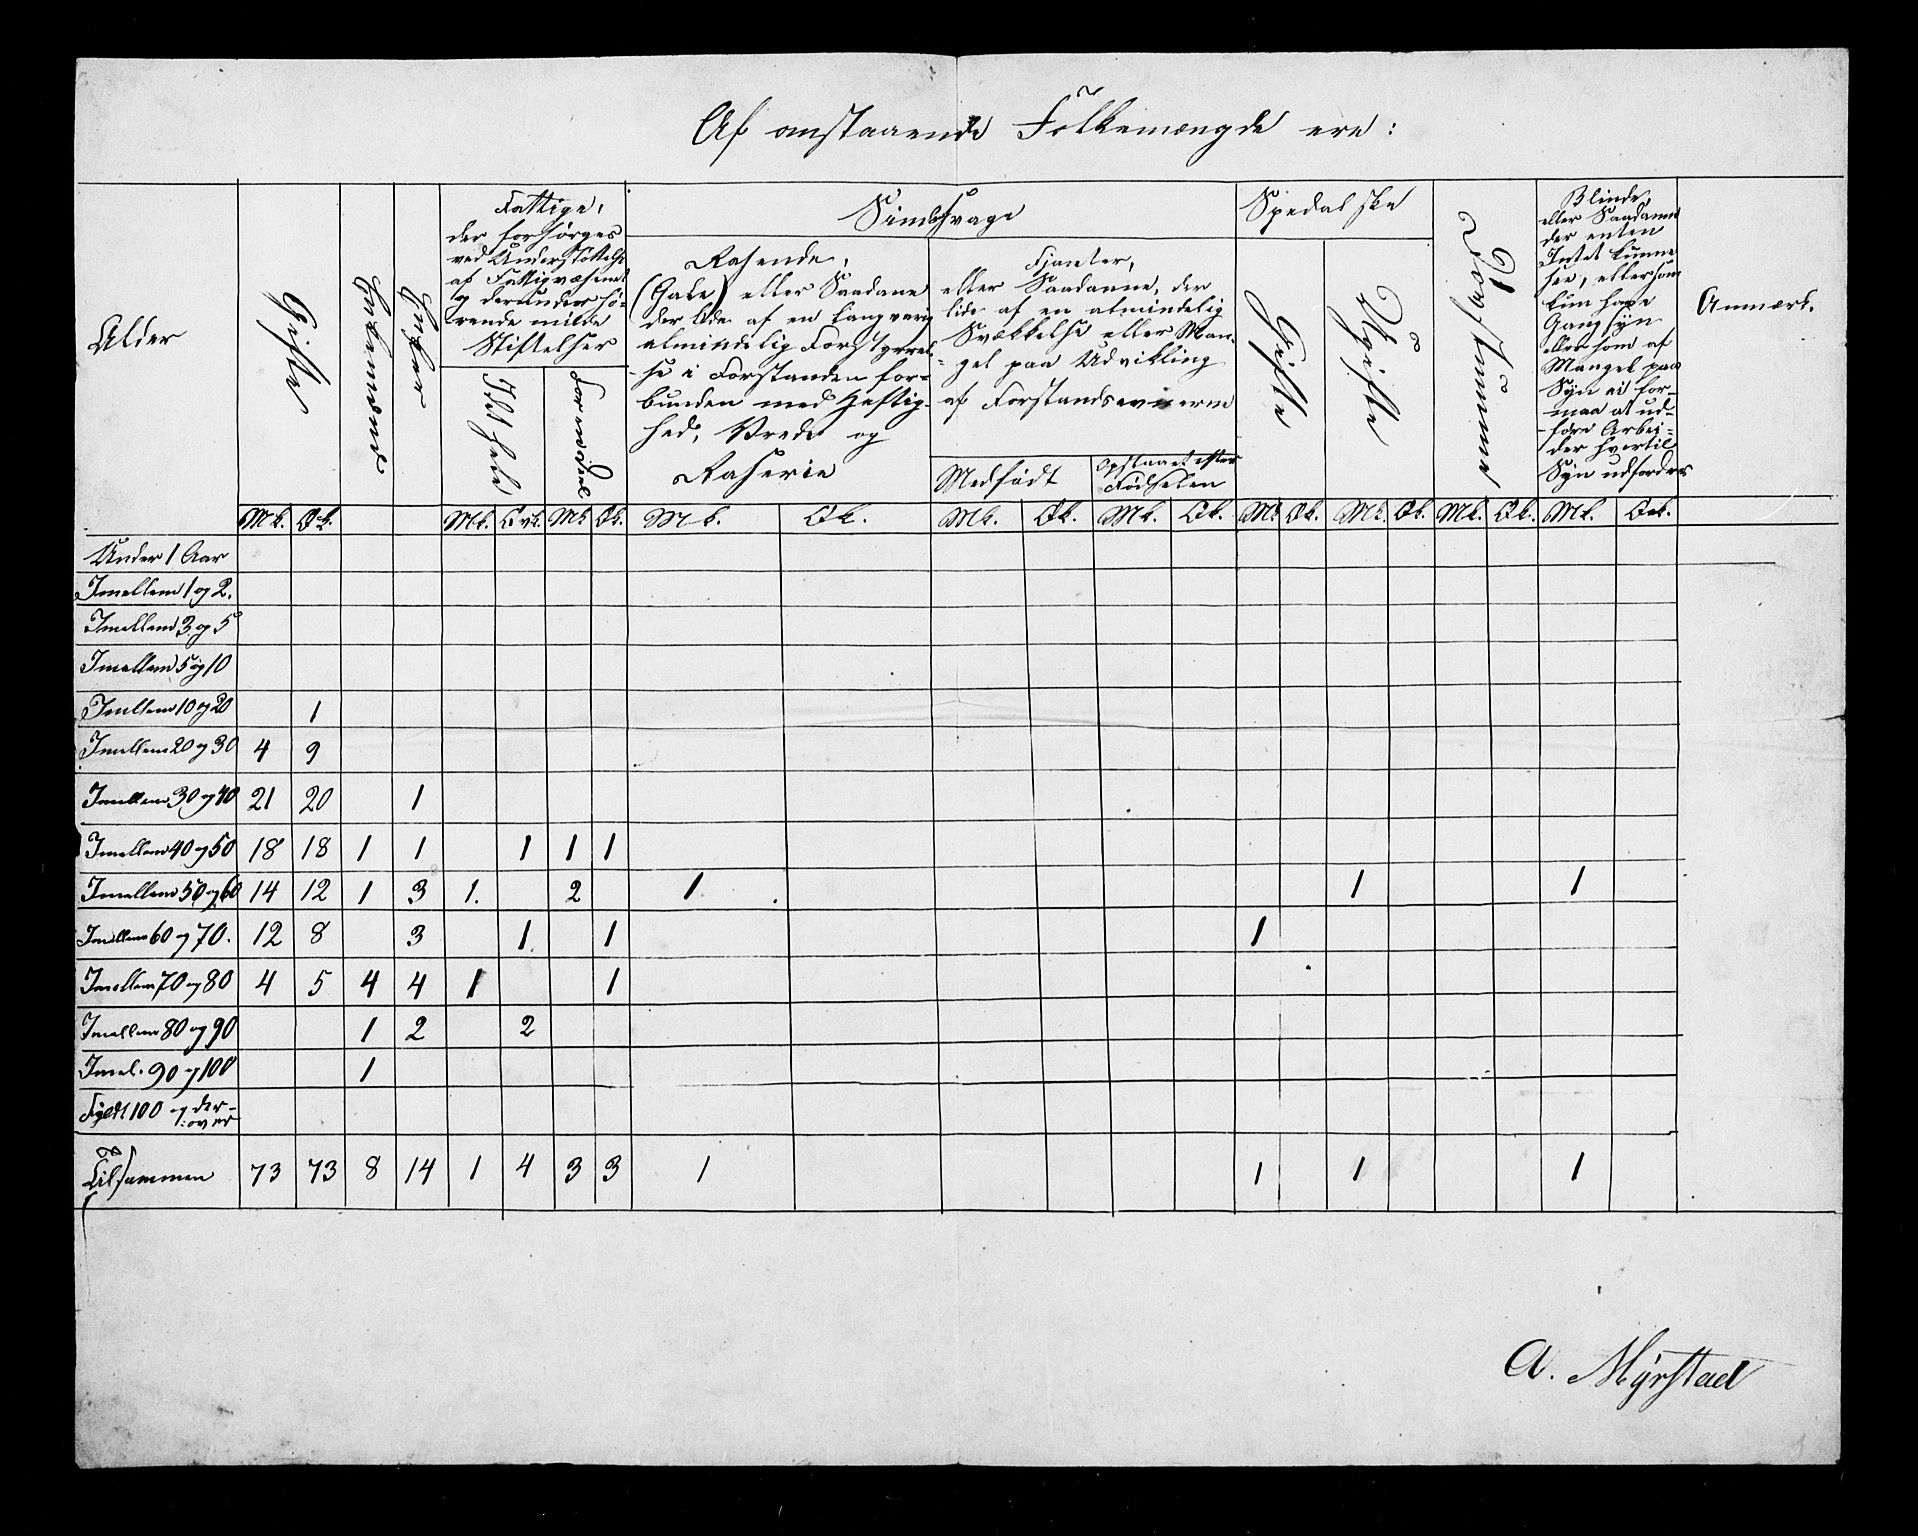 Af anstaaende Folkemængde ere:
Alder
Gifte
Enkemænd
Enker
Fattige,
der forsørges
ved Understøttelse
af Fattigvæsenet
og derunder hø-
rende milde
Stiftelser
For hele
For en Deel
Sindssvage
Rasende,
(Gale) eller Saadane
der lide af en langvarig
almindelig Forstyrrel-
se i Forstanden for-
bunden med Heftig-
hed, Vrede og
Raserie
Fjanter,
eller Saadanne, der
lide af en almindelig
Svækkelse eller Man-
gel paa Udvikling
af Forstandsevnerne
Medfødt
Opstaaet efter
Fødselen
Spedalske
Gifte
Ugifte
Døvstumme
Blinde,
eller Saadanne
der enten
Intet kunne
see, eller som
kun have
Gangsyn
eller som af
Mangel paa
Syn ei for-
maa at ud-
føre Arbei-
der hvortil
Syn udfordres
Anmærk.
Mk. Qk. Mk. Qvk. Mk Qk. Mk. Qk. Mk. Qk. Mk. Qk. Mk Qk. Mk. Qk. Mk. Qk. Mk. Qvk.
Under 1 Aar
Imellem 1 og 2.
Imellem 3 og 5
Imellem 5 og 10
Imellem 10 og 20 1
Imellem 20 og 30 4 9
Imellem 30 og 40 21 20 1
Imellem 40 og 50 18 18 1 1 1 1 1
Imellem 50 og 60 14 12 1 3 1. 2 1. 1 1
Imellem 60 og 70. 12 8 3 1. 1 1
Imellem 70 og 80 4 5 4 4 1 1
Imellem 80 og 90 1 2 2
Imel. 90 og 100 1
Fyldt 100 og der-
over
Tilsammen 73 73 8 14 1 4 3 3 1 1 1 1
A. Myrstad